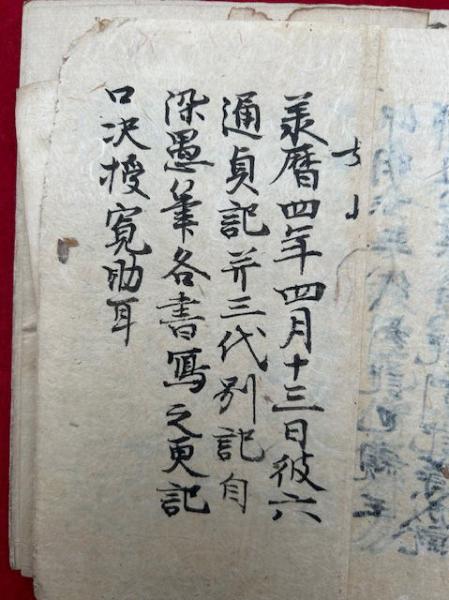 承暦四年四月十三日彼六
通貞記并三代別記自
染愚筆各書寫之更記
口决授寛助耳